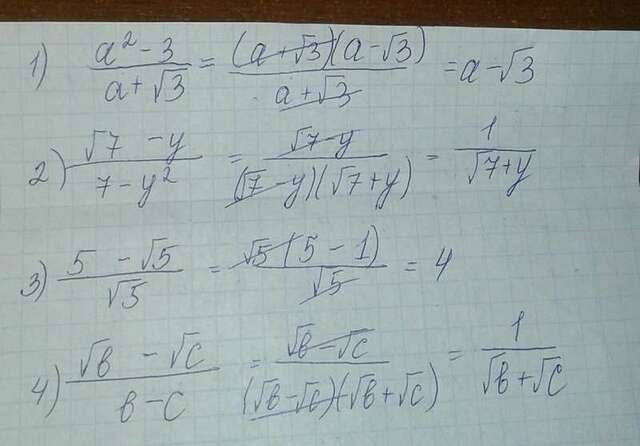 1) (a² - 3)/(a + √3) = ((a + √3)(a - √3))/(a + √3) = a - √3
2) (√7 - y)/(7 - y²) = (√7 - y)/((√7 - y)(√7 + y)) = 1/(√7 + y)
3) (5 - √5)/√5 = (√5(5 - 1))/√5 = 4
4) (√в - √c)/(в - c) = (√в - √c)/((√в - √c)(√в + √c)) = 1/(√в + √c)